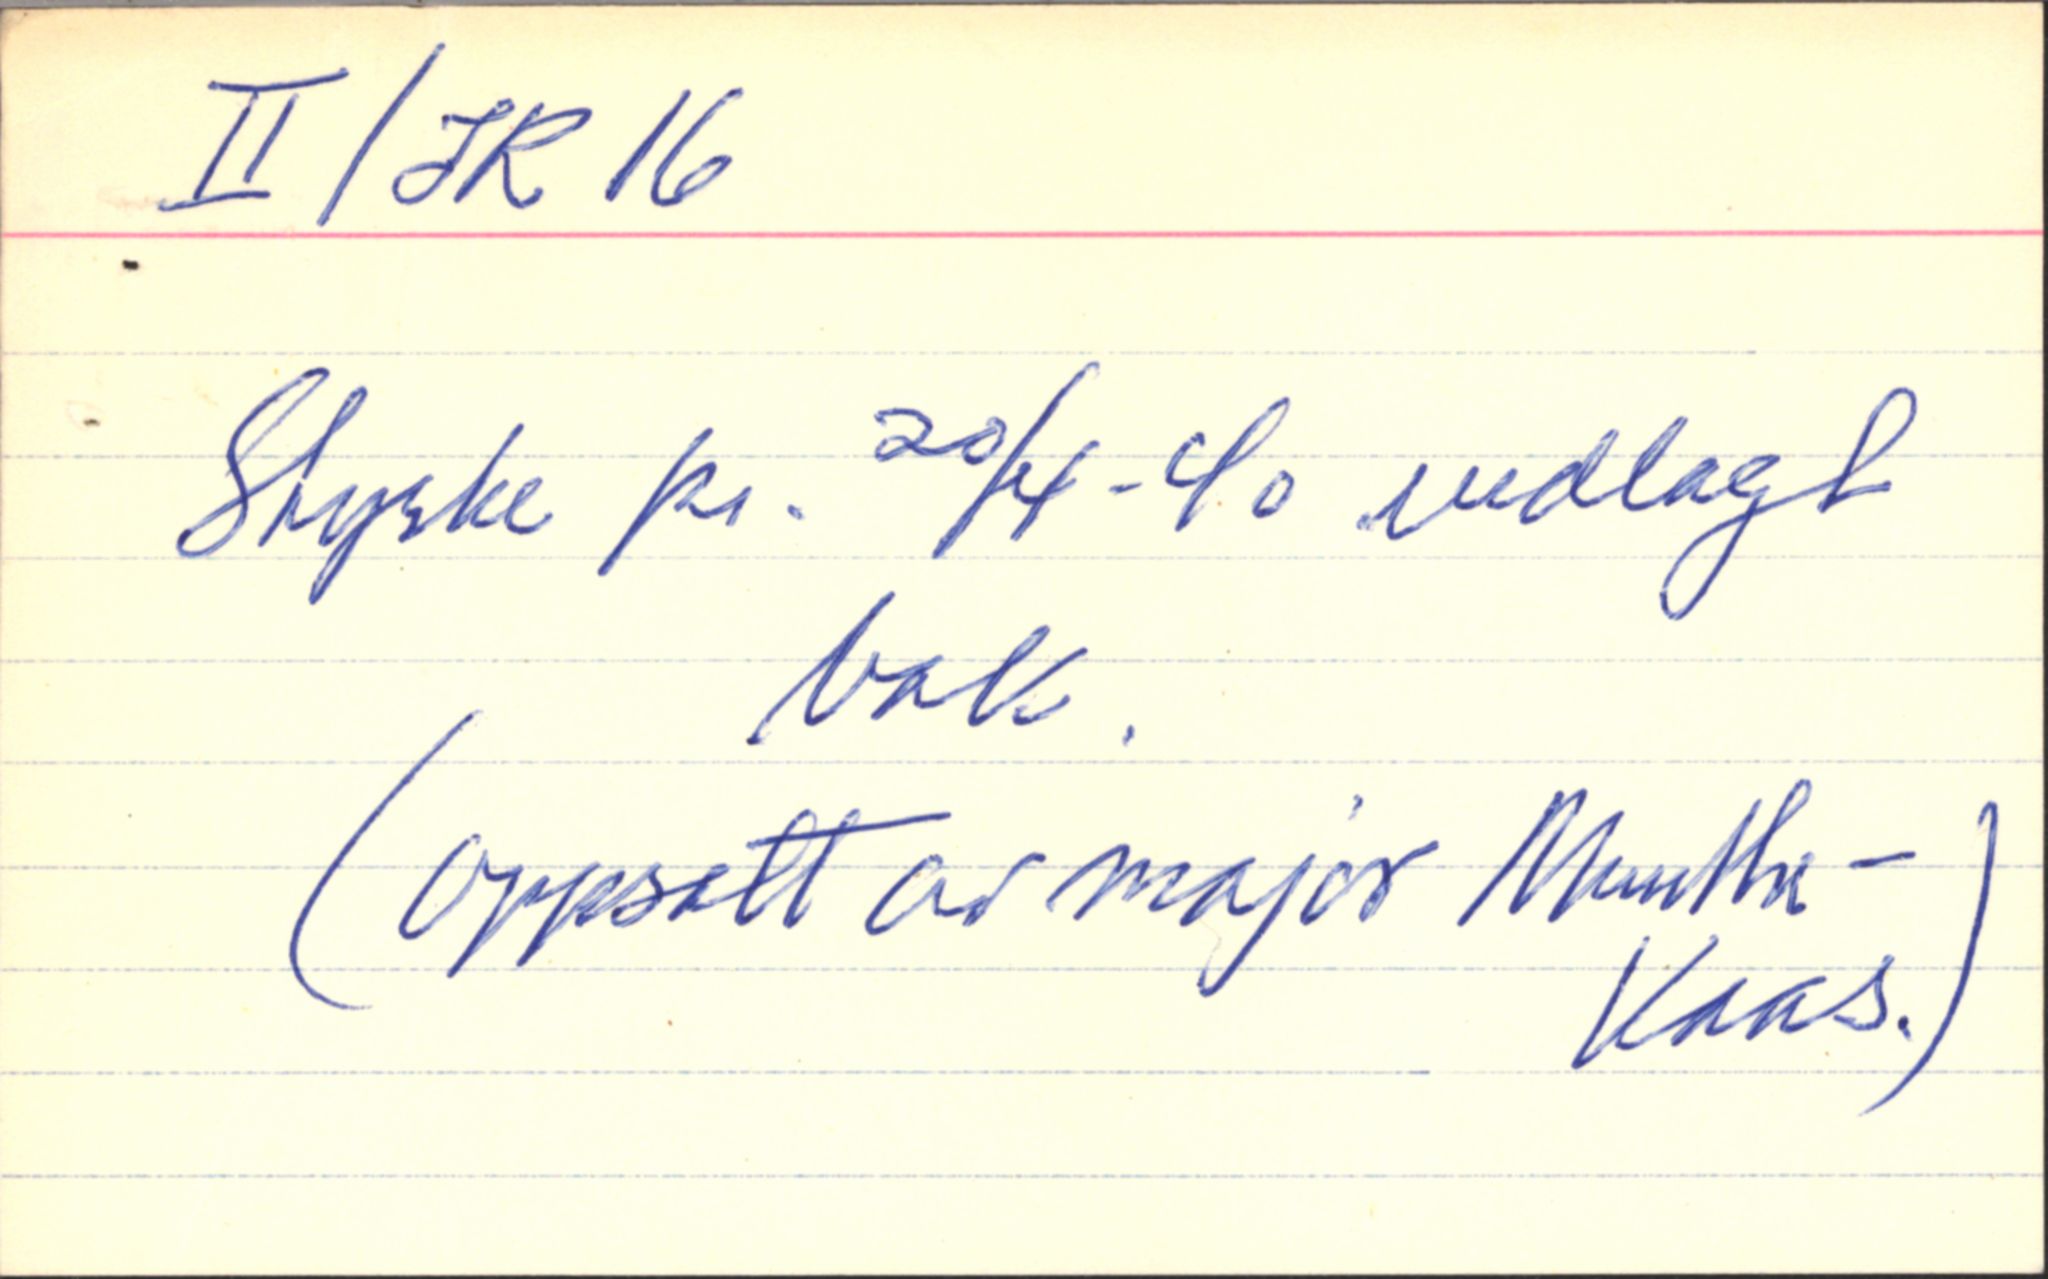 II/IR 16
Styrke pr. 20/4-40 vedlagt
bak.
(oppsatt av major Munthe-
Kaas.)